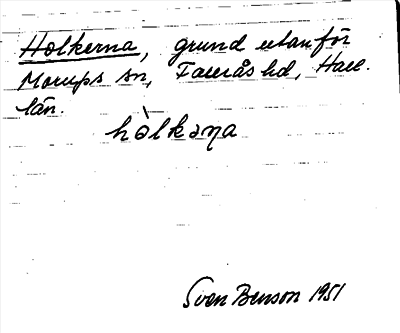 Holkerna, grund utanför
Morups sn, Faurås hd, Hall.
län.
hòlkəɳa
Sven Benson 1951